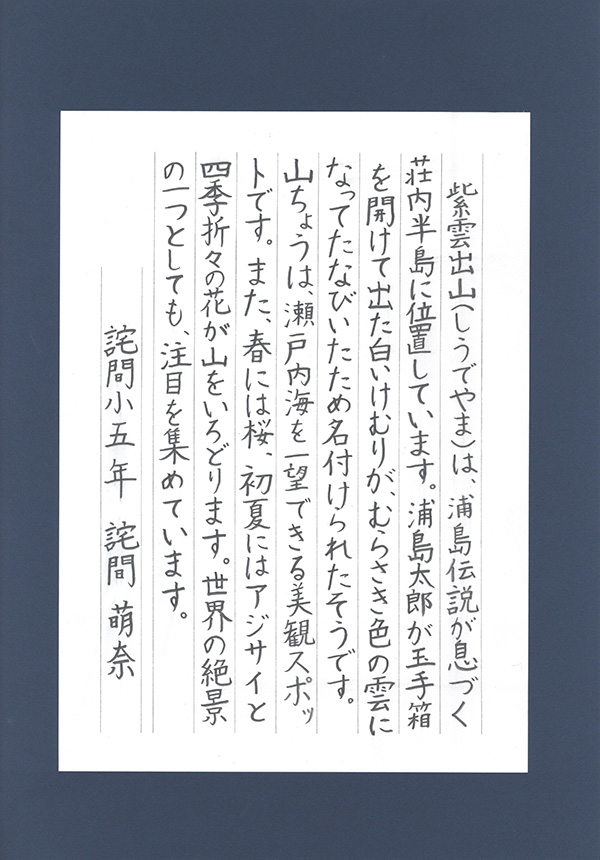 紫雲出山(しうでやま)は、浦島伝説が息づく
荘内半島に位置しています。浦島太郎が玉手箱
を開けて出た白いけむりが、むらさき色の雲に
なってたなびいたため名付けられたそうです。
山ちょうは、瀬戸内海を一望できる美観スポッ
トです。また、春には桜、初夏にはアジサイと
四季折々の花が山をいろどります。世界の絶景
の一つとしても、注目を集めています。
詫間小五年 詫間 萌奈